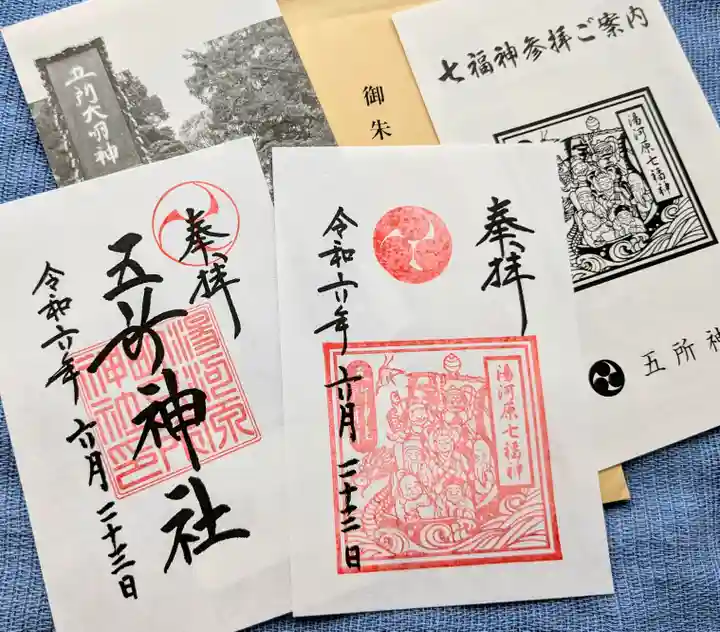 五所大明神
御朱
七福神参拝ご案内
湯河原七福神
五所神
奉拝
五所神社
令和六年
六月
二十三日
奉拝
令和六年
六月
二十三日
湯河原七福神